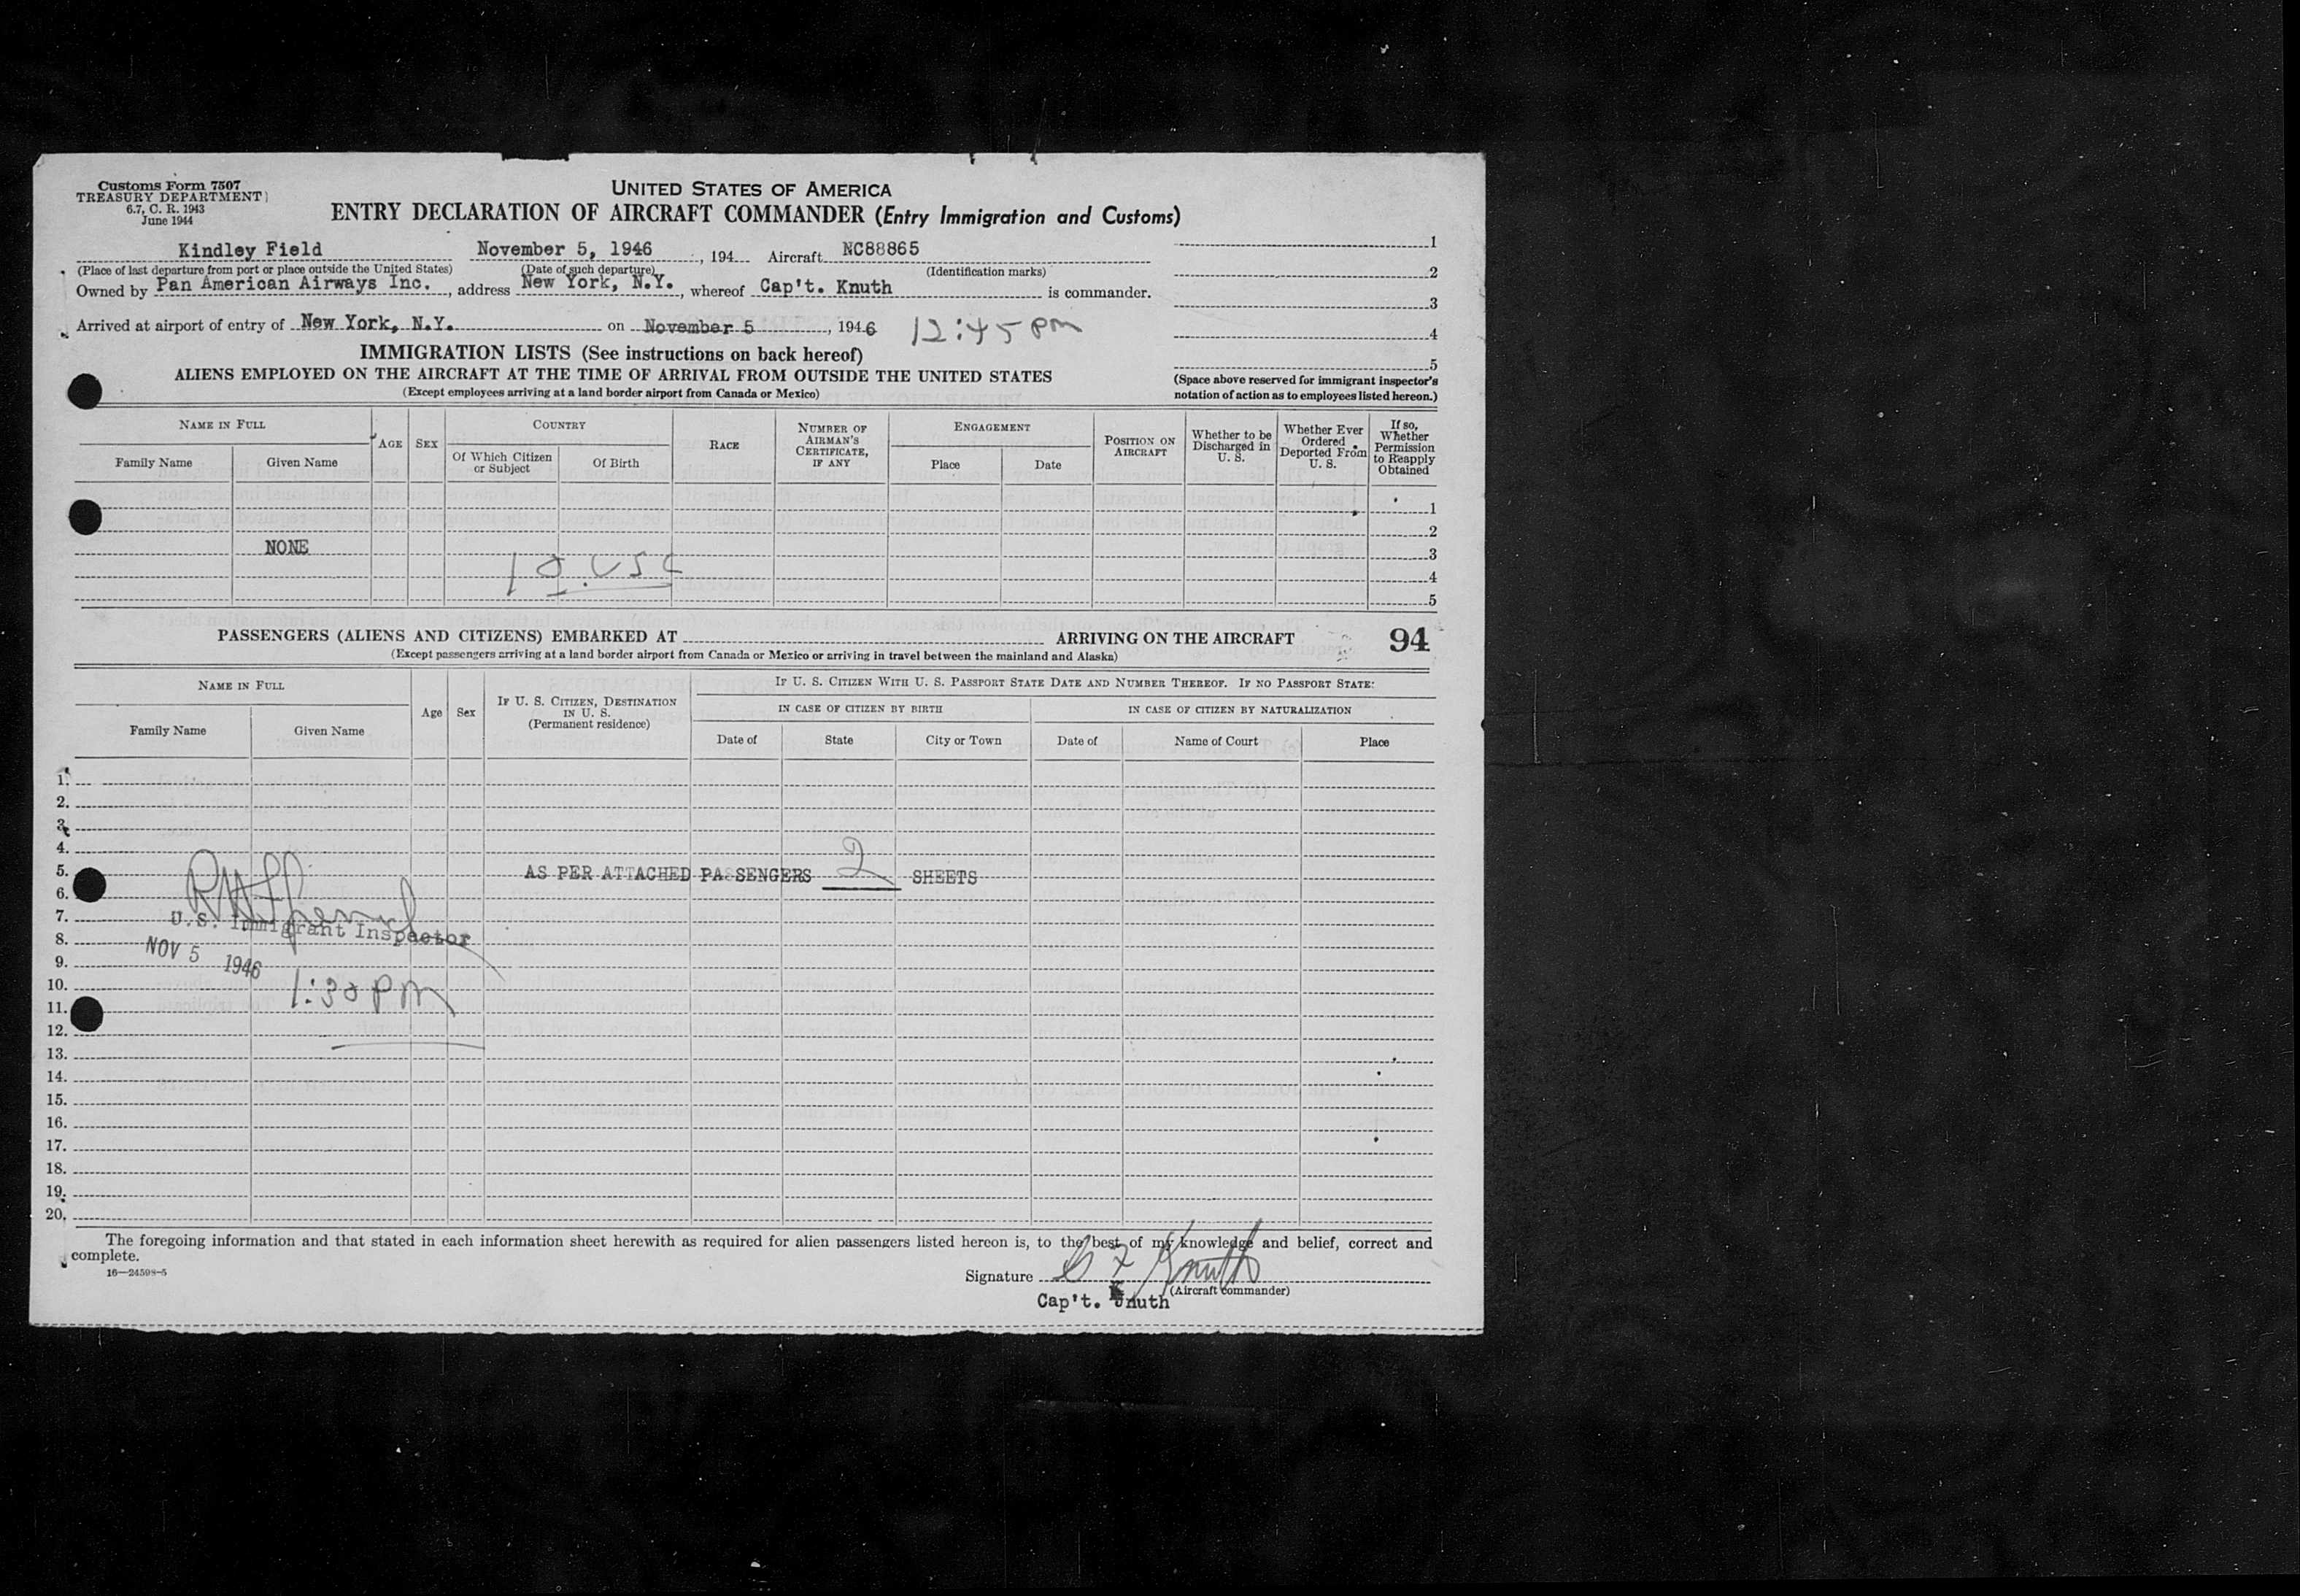 Customs Form 7507
TREASURY DEPARTMENT
6.7, C. R. 1943
June 1944
UNITED STATES OF AMERICA
ENTRY DECLARATION OF AIRCRAFT COMMANDER (Entry Immigration and Customs)
Kindley Field November 5, 1946, 194 Aircraft NC88865
(Place of last departure from port or place outside the United States) (Date of such departure) (Identification marks)
Owned by Pan American Airways Inc., address New York, N.Y., whereof Cap't. Knuth is commander.
Arrived at airport of entry of New York, N.Y. on November 5, 1946 12:45 pm
1
2
3
4
5
(Space above reserved for immigrant inspector's
notation of action as to employees listed hereon.)
IMMIGRATION LISTS (See instructions on back hereof)
ALIENS EMPLOYED ON THE AIRCRAFT AT THE TIME OF ARRIVAL FROM OUTSIDE THE UNITED STATES
(Except employees arriving at a land border airport from Canada or Mexico)
NAME IN FULL
Family Name
Given Name
AGE
SEX
COUNTRY
Of Which Citizen or Subject
Of Birth
RACE
NUMBER OF AIRMAN'S CERTIFICATE, IF ANY
ENGAGEMENT
Place
Date
POSITION ON AIRCRAFT
Whether to be Discharged in U. S.
Whether Ever Ordered Deported From U. S.
If so, Whether Permission to Reapply Obtained
1
2
NONE 3
10 USC 4
5
PASSENGERS (ALIENS AND CITIZENS) EMBARKED AT ARRIVING ON THE AIRCRAFT 94
(Except passengers arriving at a land border airport from Canada or Mexico or arriving in travel between the mainland and Alaska)
NAME IN FULL
Family Name
Given Name
Age
Sex
IF U. S. CITIZEN, DESTINATION IN U. S.
(Permanent residence)
IF U. S. CITIZEN WITH U. S. PASSPORT STATE DATE AND NUMBER THEREOF. IF NO PASSPORT STATE:
IN CASE OF CITIZEN BY BIRTH
IN CASE OF CITIZEN BY NATURALIZATION
Date of
State
City or Town
Date of
Name of Court
Place
1.
2.
3.
4.
5. AS PER ATTACHED PASSENGERS 2 SHEETS
6.
7. U.S. Immigrant Inspector
8.
9. NOV 5 1946
10. 1:30 PM
11.
12.
13.
14.
15.
16.
17.
18.
19.
20.
The foregoing information and that stated in each information sheet herewith as required for alien passengers listed hereon is, to the best of my knowledge and belief, correct and
complete.
16—24598-5
Signature Knuth
(Aircraft commander)
Cap't. Knuth